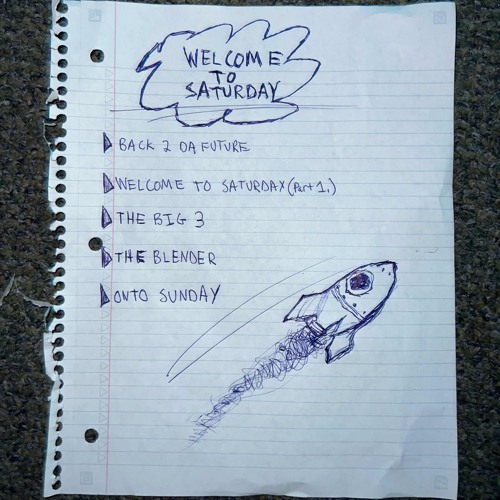 WELCOME
TO
SATURDAY
BACK 2 DA FUTURE
WELCOME TO SATURDAY (Part 1.)
THE BIG 3
THE BLENDER
ONTO SUNDAY